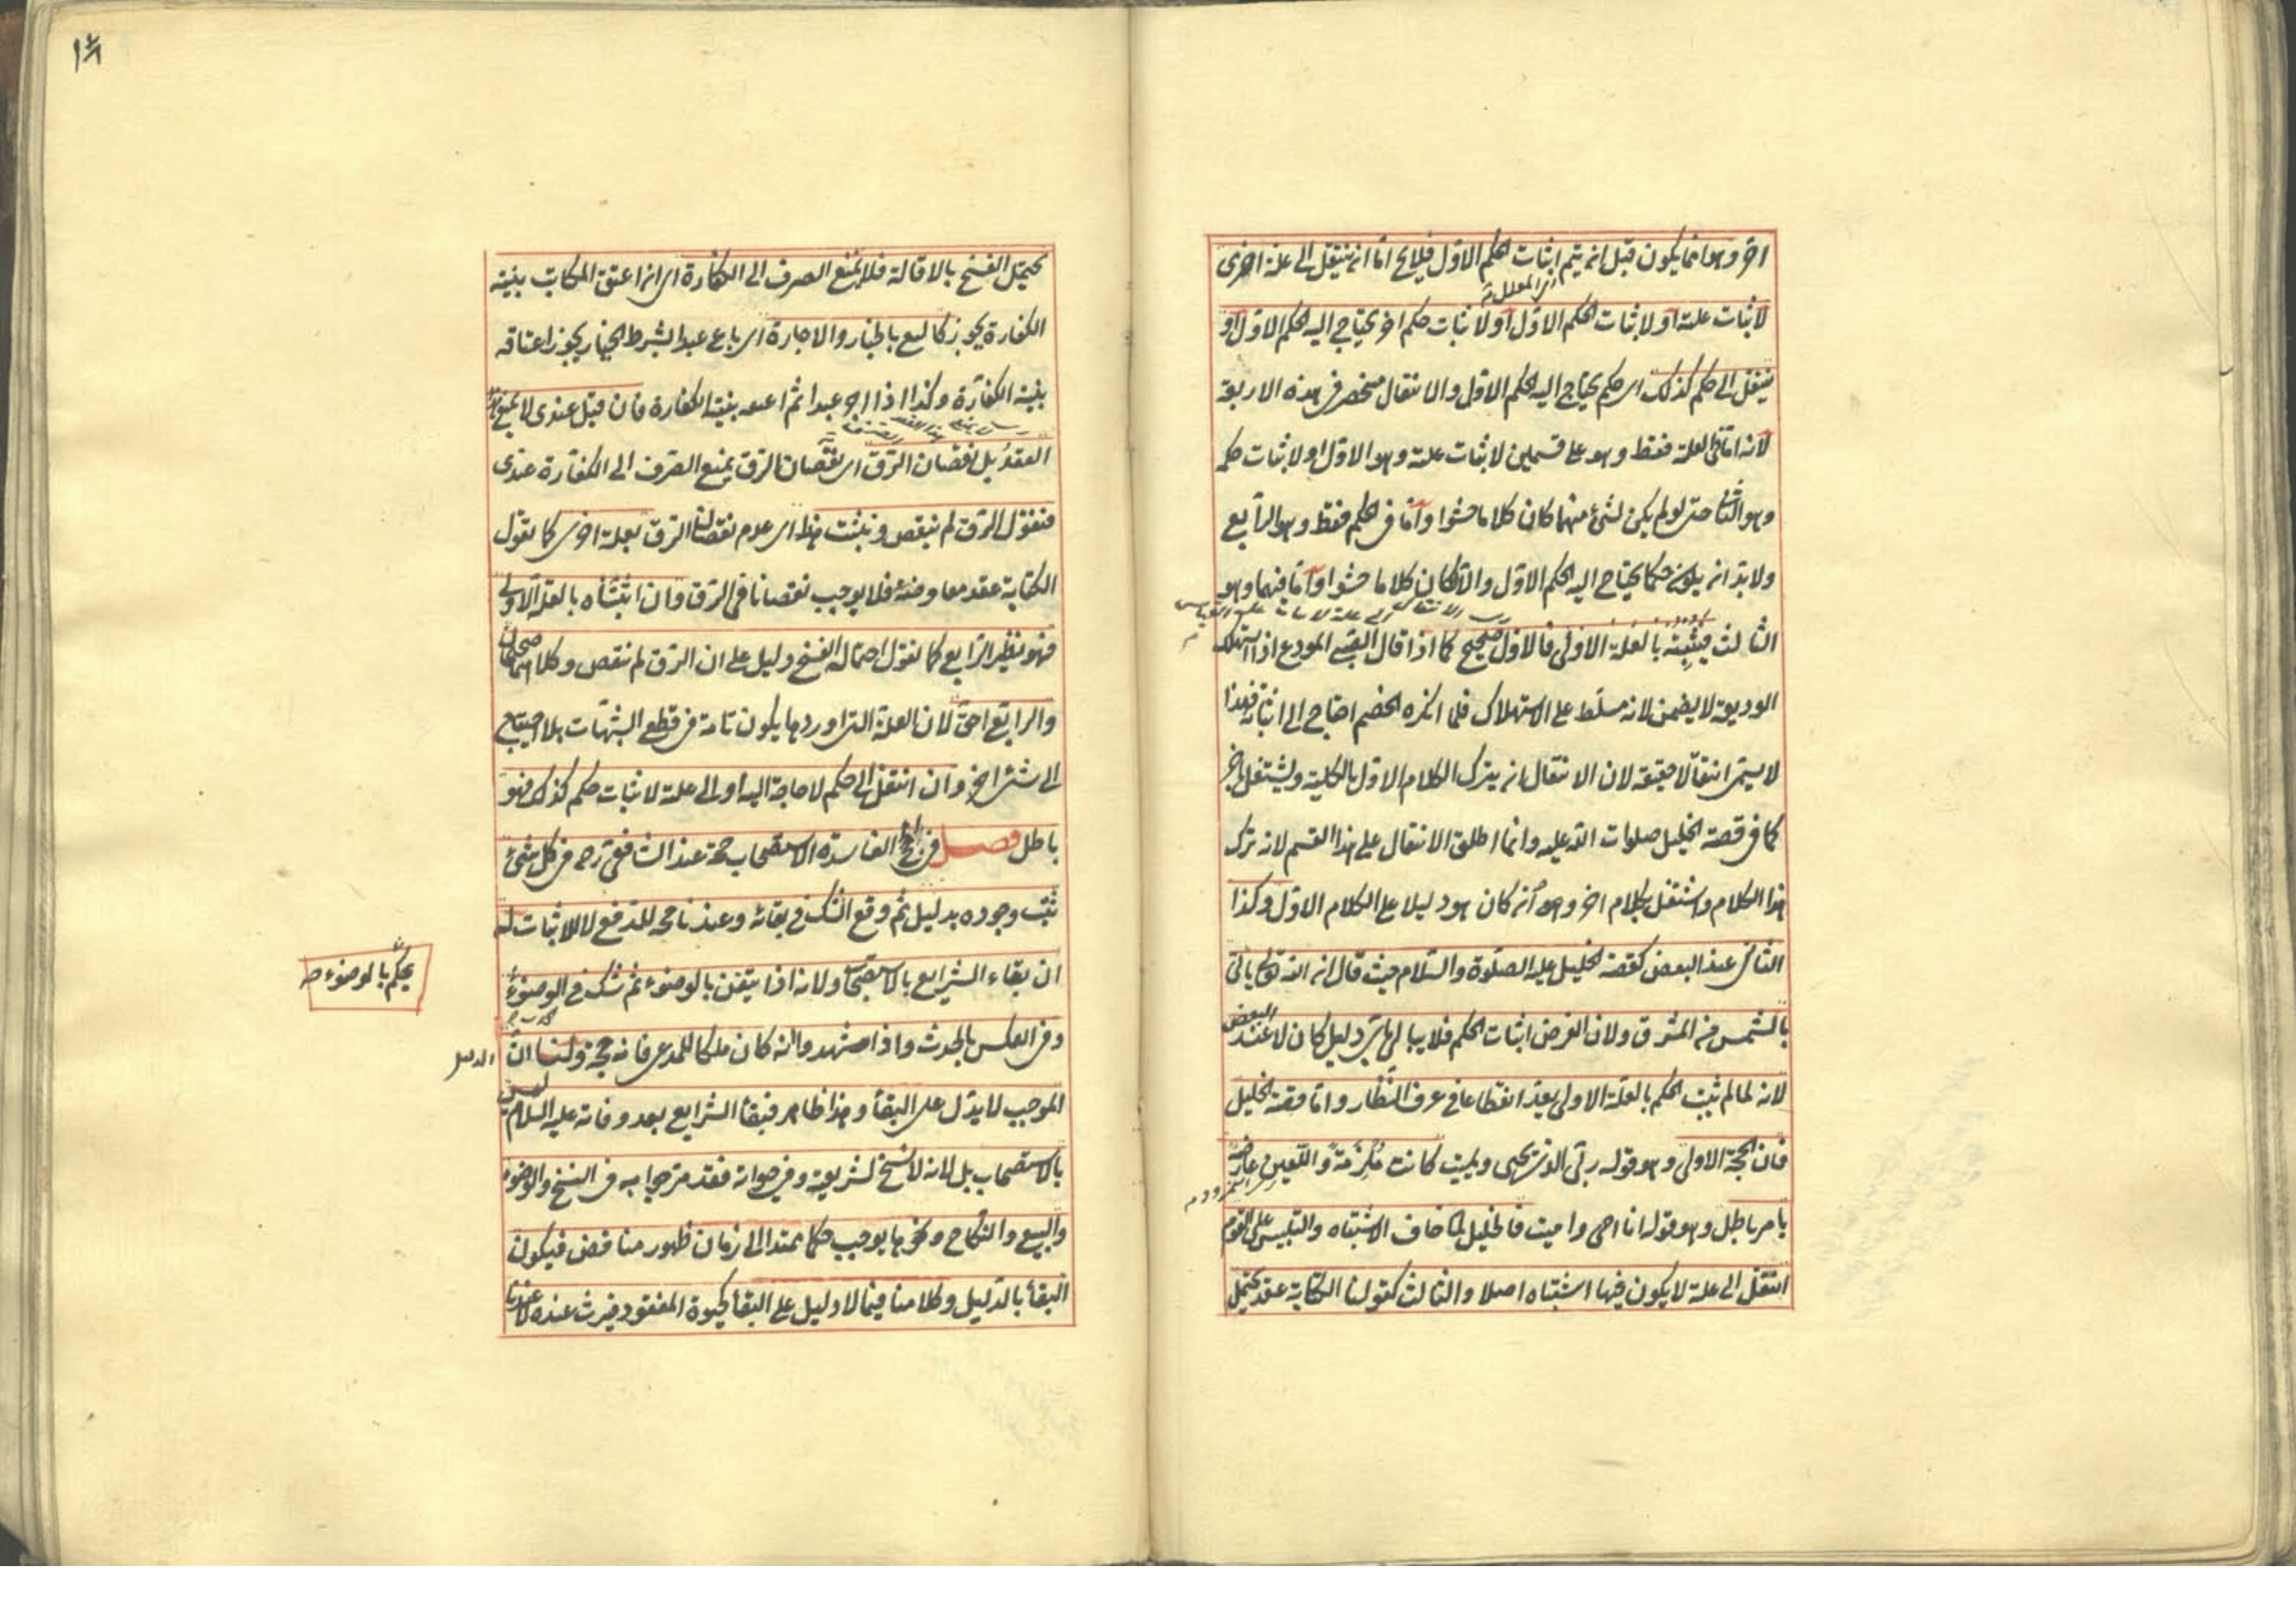 اخر وهو انما يكون قبل ان يتم اثبات الحكم الاول فلا يخ اما ان ينتقل الى علة اخرى
لاثبات علته او لاثبات الحكم الاول او لاثبات حكم اخر يحتاج اليه الحكم الاول او
ينتقل الى حكم كذلك اى حكم يحتاج اليه الحكم الاول والانتقال منحصر فى هذه الاربعة
لانه اما فى العلة فقط وهو على قسمين لاثبات علته وهو الاول او لاثبات حكم
وهو الثانى حتى لو لم يكن لشئ منهما كان كلاما حشوا واما فى الحكم فقط وهو الرابع
ولا بد ان يكون حكما يحتاج اليه الحكم الاول والا لكان كلاما حشوا واما فيهما وهو
الثالث فيثبته بالعلة الاولى فالاول صحيح كما اذا قال الصبى المودع اذا استهلك
الوديعة لا يضمن لانه مسلط على الاستهلاك فلما انكره الخصم احتاج الى اثباته فهذا
لا يسمى انتقالا حقيقة لان الانتقال ان يترك الكلام الاول بالكلية ويشتغل باخر
كما فى قصة الخليل صلوات الله عليه وانما اطلق الانتقال على هذا القسم لانه ترك
هذا الكلام واشتغل بكلام اخر وهو انه كان هو دليلا على الكلام الاول وكذا
الثانى عند البعض كقصة الخليل عليه الصلوة والسلام حيث قال ان الله تعالى ياتى
بالشمس من المشرق ولان الغرض اثبات الحكم فلا يبالى باى دليل كان لا عند البعض
لانه لما لم يثبت الحكم بالعلة الاولى يعد انقطاعا فى عرف النظار واما قصة الخليل
فان الحجة الاولى وهو قوله ربى الذى يحيى ويميت كانت ملزمة واللعين عارضه
بامر باطل وهو قوله انا احى واميت فالخليل لما خاف الاشتباه والتلبيس على القوم
انتقل الى علة لا يكون فيها اشتباه اصلا والثالث كقولنا الكتابة عقد يحتمل
يحتمل الفسخ بالاقالة فلا يمنع الصرف الى الكفارة اى ان اعتق المكاتب بنية
الكفارة يجوز كالبيع بالخيار والاجارة اى باع عبدا بشرط الخيار يجوز اعتاقه
بنية الكفارة وكذا اذا اجر عبدا ثم اعتقه بنية الكفارة فان قيل عندى لا يمنع هذا
العقد بل نقصان الرق اى نقصان الرق يمنع الصرف الى الكفارة عندى
فنقول الرق لم ينقص ونثبت هذا اى عدم نقصان الرق بعلة اخرى كما نقول
الكتابة عقد معاوضة فلا يوجب نقصانا فى الرق وان اثبتناه بالعلة الاولى
فهو نظير الرابع كما نقول احتماله الفسخ دليل على ان الرق لم ينقص وكلاهما صحيحان
والرابع احق لان العلة التى اوردها يكون تامة فى قطع الشبهات بلا احتياج
الى شئ اخر وان انتقل الى حكم لا حاجة اليه او الى علة لاثبات حكم كذلك فهو
باطل فصل فى الحجج الفاسدة الاستصحاب حجة عند الشافعى رح فى كل شئ
ثبت وجوده بدليل ثم وقع الشك فى بقائه وعندنا حجة للدفع لا للاثبات له
ان بقاء الشرايع بالاستصحاب ولانه اذا تيقن بالوضوء ثم شك فى الوضوء
يحكم بالوضوء صح
وفى العكس بالحدث واذا شهدوا انه كان ملكا للمدعى فانه حجة ولنا ان الدليل
الموجب لا يدل على البقاء وهذا ظاهر فبقاء الشرايع بعد وفاته عليه السلام ليس
بالاستصحاب بل لانه لا نسخ لشريعته وفى حياته فقد مر جوابه فى النسخ والوضوء
والبيع والنكاح ونحوها يوجب حكما ممتدا الى زمان ظهور مناقض فيكون
البقاء بالدليل وكلامنا فيما لا دليل على البقاء كحيوة المفقود فيرث عنده لا عندنا